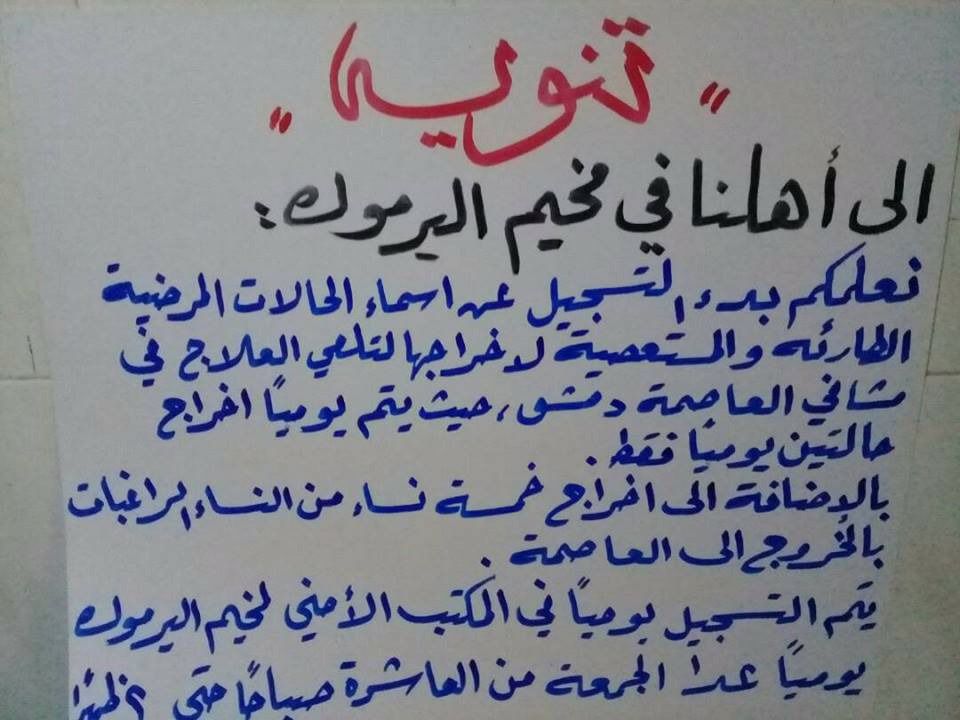 "تنويه"
الى أهلنا في مخيم اليرموك:
نعلمكم بدء التسجيل عن اسماء الحالات المرضية
الطارئه والمستعصية لاخراجها لتلقي العلاج في
مشافي العاصمة دمشق، حيث يتم يومياً اخراج
حالتين يومياً فقط.
بالإضافة الى اخراج خمسة نساء من النساء الراغبات
بالخروج الى العاصمة.
يتم التسجيل يومياً في المكتب الأمني لمخيم اليرموك
يومياً عدا الجمعة من العاشرة صباحاً حتى ٢ ظهراً